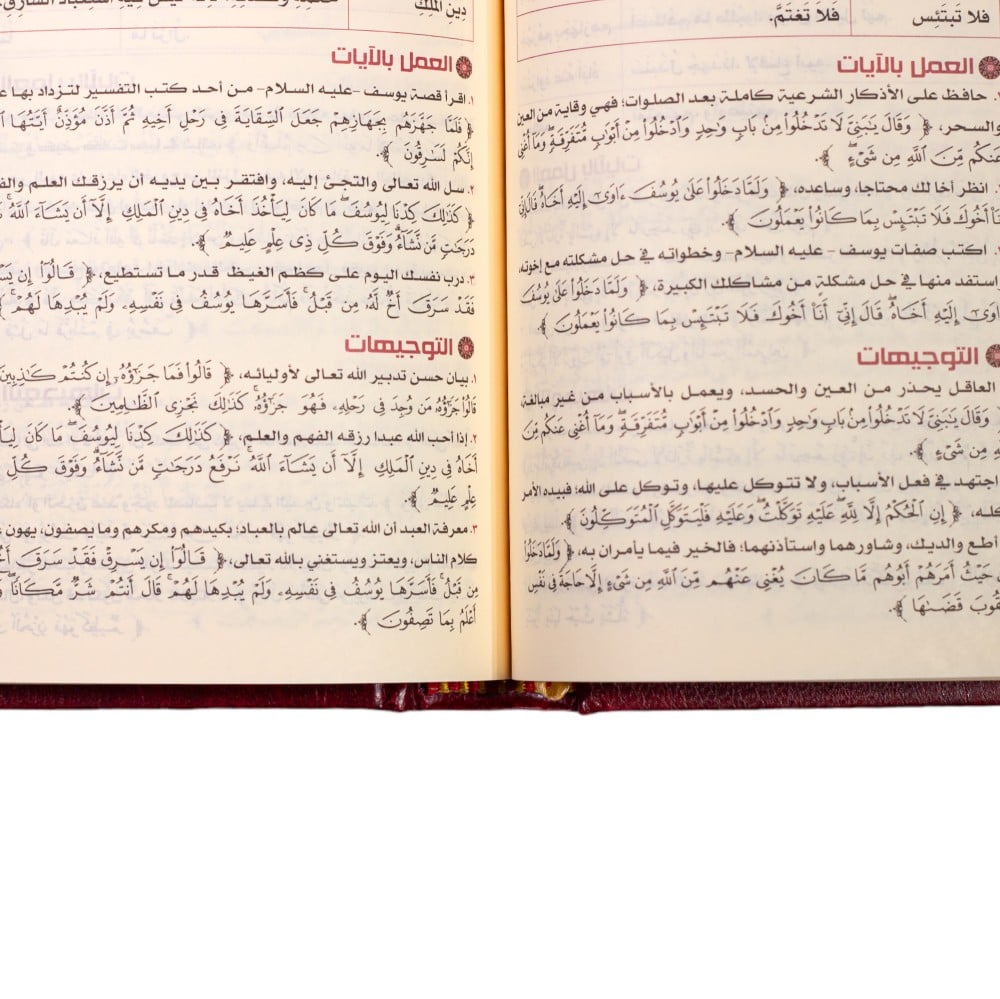 فلا تَبتَئِس فَلاَ تَغتَمَّ.
العمل بالآيات
حافظ على الأذكار الشرعية كاملة بعد الصلوات؛ فهي وقاية من العين
والسحر، ﴿ وَقَالَ يَٰبَنِىَّ لَا تَدْخُلُوا۟ مِنۢ بَابٍ وَٰحِدٍ وَٱدْخُلُوا۟ مِنْ أَبْوَٰبٍ مُّتَفَرِّقَةٍ ۖ وَمَآ أُغْنِى
عَنكُم مِّنَ ٱللَّهِ مِن شَىْءٍ ۖ ﴾.
انظر أخا لك محتاجا، وساعده، ﴿ وَلَمَّا دَخَلُوا۟ عَلَىٰ يُوسُفَ ءَاوَىٰٓ إِلَيْهِ أَخَاهُ ۖ قَالَ إِنِّىٓ
أَنَا۠ أَخُوكَ فَلَا تَبْتَئِسْ بِمَا كَانُوا۟ يَعْمَلُونَ ﴾.
اكتب صفات يوسف - عليه السلام- وخطواته في حل مشكلته مع إخوته،
استفد منها في حل مشكلة من مشاكلك الكبيرة، ﴿ وَلَمَّا دَخَلُوا۟ عَلَىٰ يُوسُفَ
ءَاوَىٰٓ إِلَيْهِ أَخَاهُ ۖ قَالَ إِنِّىٓ أَنَا۠ أَخُوكَ فَلَا تَبْتَئِسْ بِمَا كَانُوا۟ يَعْمَلُونَ ﴾.
التوجيهات
العاقل يحذر من العين والحسد، ويعمل بالأسباب من غير مبالغة،
وَقَالَ يَٰبَنِىَّ لَا تَدْخُلُوا۟ مِنۢ بَابٍ وَٰحِدٍ وَٱدْخُلُوا۟ مِنْ أَبْوَٰبٍ مُّتَفَرِّقَةٍ ۖ وَمَآ أُغْنِى عَنكُم مِّنَ
مِن شَىْءٍ ﴾.
اجتهد في فعل الأسباب، ولا تتوكل عليها، وتوكل على الله؛ فبيده الأمر
كله، ﴿ إِنِ ٱلْحُكْمُ إِلَّا لِلَّهِ ۖ عَلَيْهِ تَوَكَّلْتُ ۖ وَعَلَيْهِ فَلْيَتَوَكَّلِ ٱلْمُتَوَكِّلُونَ ﴾.
أطع والديك، وشاورهما واستأذنهما؛ فالخير فيما يأمران به، ﴿ وَلَمَّا دَخَلُوا۟
حَيْثُ أَمَرَهُمْ أَبُوهُم مَّا كَانَ يُغْنِى عَنْهُم مِّنَ ٱللَّهِ مِن شَىْءٍ إِلَّا حَاجَةً فِى نَفْسِ
قَضَىٰهَا ﴾.
دِينِ المَلِكِ
العمل بالآيات
١. اقرأ قصة يوسف -عليه السلام- من أحد كتب التفسير لتزداد بها
﴿ فَلَمَّا جَهَّزَهُم بِجَهَازِهِمْ جَعَلَ ٱلسِّقَايَةَ فِى رَحْلِ أَخِيهِ ثُمَّ أَذَّنَ مُؤَذِّنٌ أَيَّتُهَا
إِنَّكُمْ لَسَٰرِقُونَ ﴾.
٢. سل الله تعالى والتجئ إليه، وافتقر بين يديه أن يرزقك العلم
﴿ كَذَٰلِكَ كِدْنَا لِيُوسُفَ ۖ مَا كَانَ لِيَأْخُذَ أَخَاهُ فِى دِينِ ٱلْمَلِكِ إِلَّآ أَن يَشَآءَ ٱللَّهُ ۚ
دَرَجَٰتٍ مَّن نَّشَآءُ ۗ وَفَوْقَ كُلِّ ذِى عِلْمٍ عَلِيمٌ ﴾.
٣. درب نفسك اليوم على كظم الغيظ قدر ما تستطيع، ﴿ قَالُوٓا۟ إِن
فَقَدْ سَرَقَ أَخٌ لَّهُۥ مِن قَبْلُ ۚ فَأَسَرَّهَا يُوسُفُ فِى نَفْسِهِۦ وَلَمْ يُبْدِهَا لَهُمْ ۚ
التوجيهات
١. بيان حسن تدبير الله تعالى لأوليائه، ﴿ قَالُوا۟ فَمَا جَزَٰٓؤُهُۥٓ إِن كُنتُمْ كَٰذِبِينَ
قَالُوا۟ جَزَٰٓؤُهُۥ مَن وُجِدَ فِى رَحْلِهِۦ فَهُوَ جَزَٰٓؤُهُۥ ۚ كَذَٰلِكَ نَجْزِى ٱلظَّٰلِمِينَ ﴾.
٢. إذا أحب الله عبدا رزقه الفهم والعلم، ﴿ كَذَٰلِكَ كِدْنَا لِيُوسُفَ ۖ مَا كَانَ
أَخَاهُ فِى دِينِ ٱلْمَلِكِ إِلَّآ أَن يَشَآءَ ٱللَّهُ ۚ نَرْفَعُ دَرَجَٰتٍ مَّن نَّشَآءُ ۗ وَفَوْقَ كُلِّ
عِلْمٍ عَلِيمٌ ﴾.
٣. معرفة العبد أن الله تعالى عالم بالعباد؛ بكيدهم ومكرهم وما يصفون، يهون
كلام الناس، ويعتز ويستغني بالله تعالى، ﴿ قَالُوٓا۟ إِن يَسْرِقْ فَقَدْ سَرَقَ
مِن قَبْلُ ۚ فَأَسَرَّهَا يُوسُفُ فِى نَفْسِهِۦ وَلَمْ يُبْدِهَا لَهُمْ ۚ قَالَ أَنتُمْ شَرٌّ مَّكَانًا ۖ
أَعْلَمُ بِمَا تَصِفُونَ ﴾.